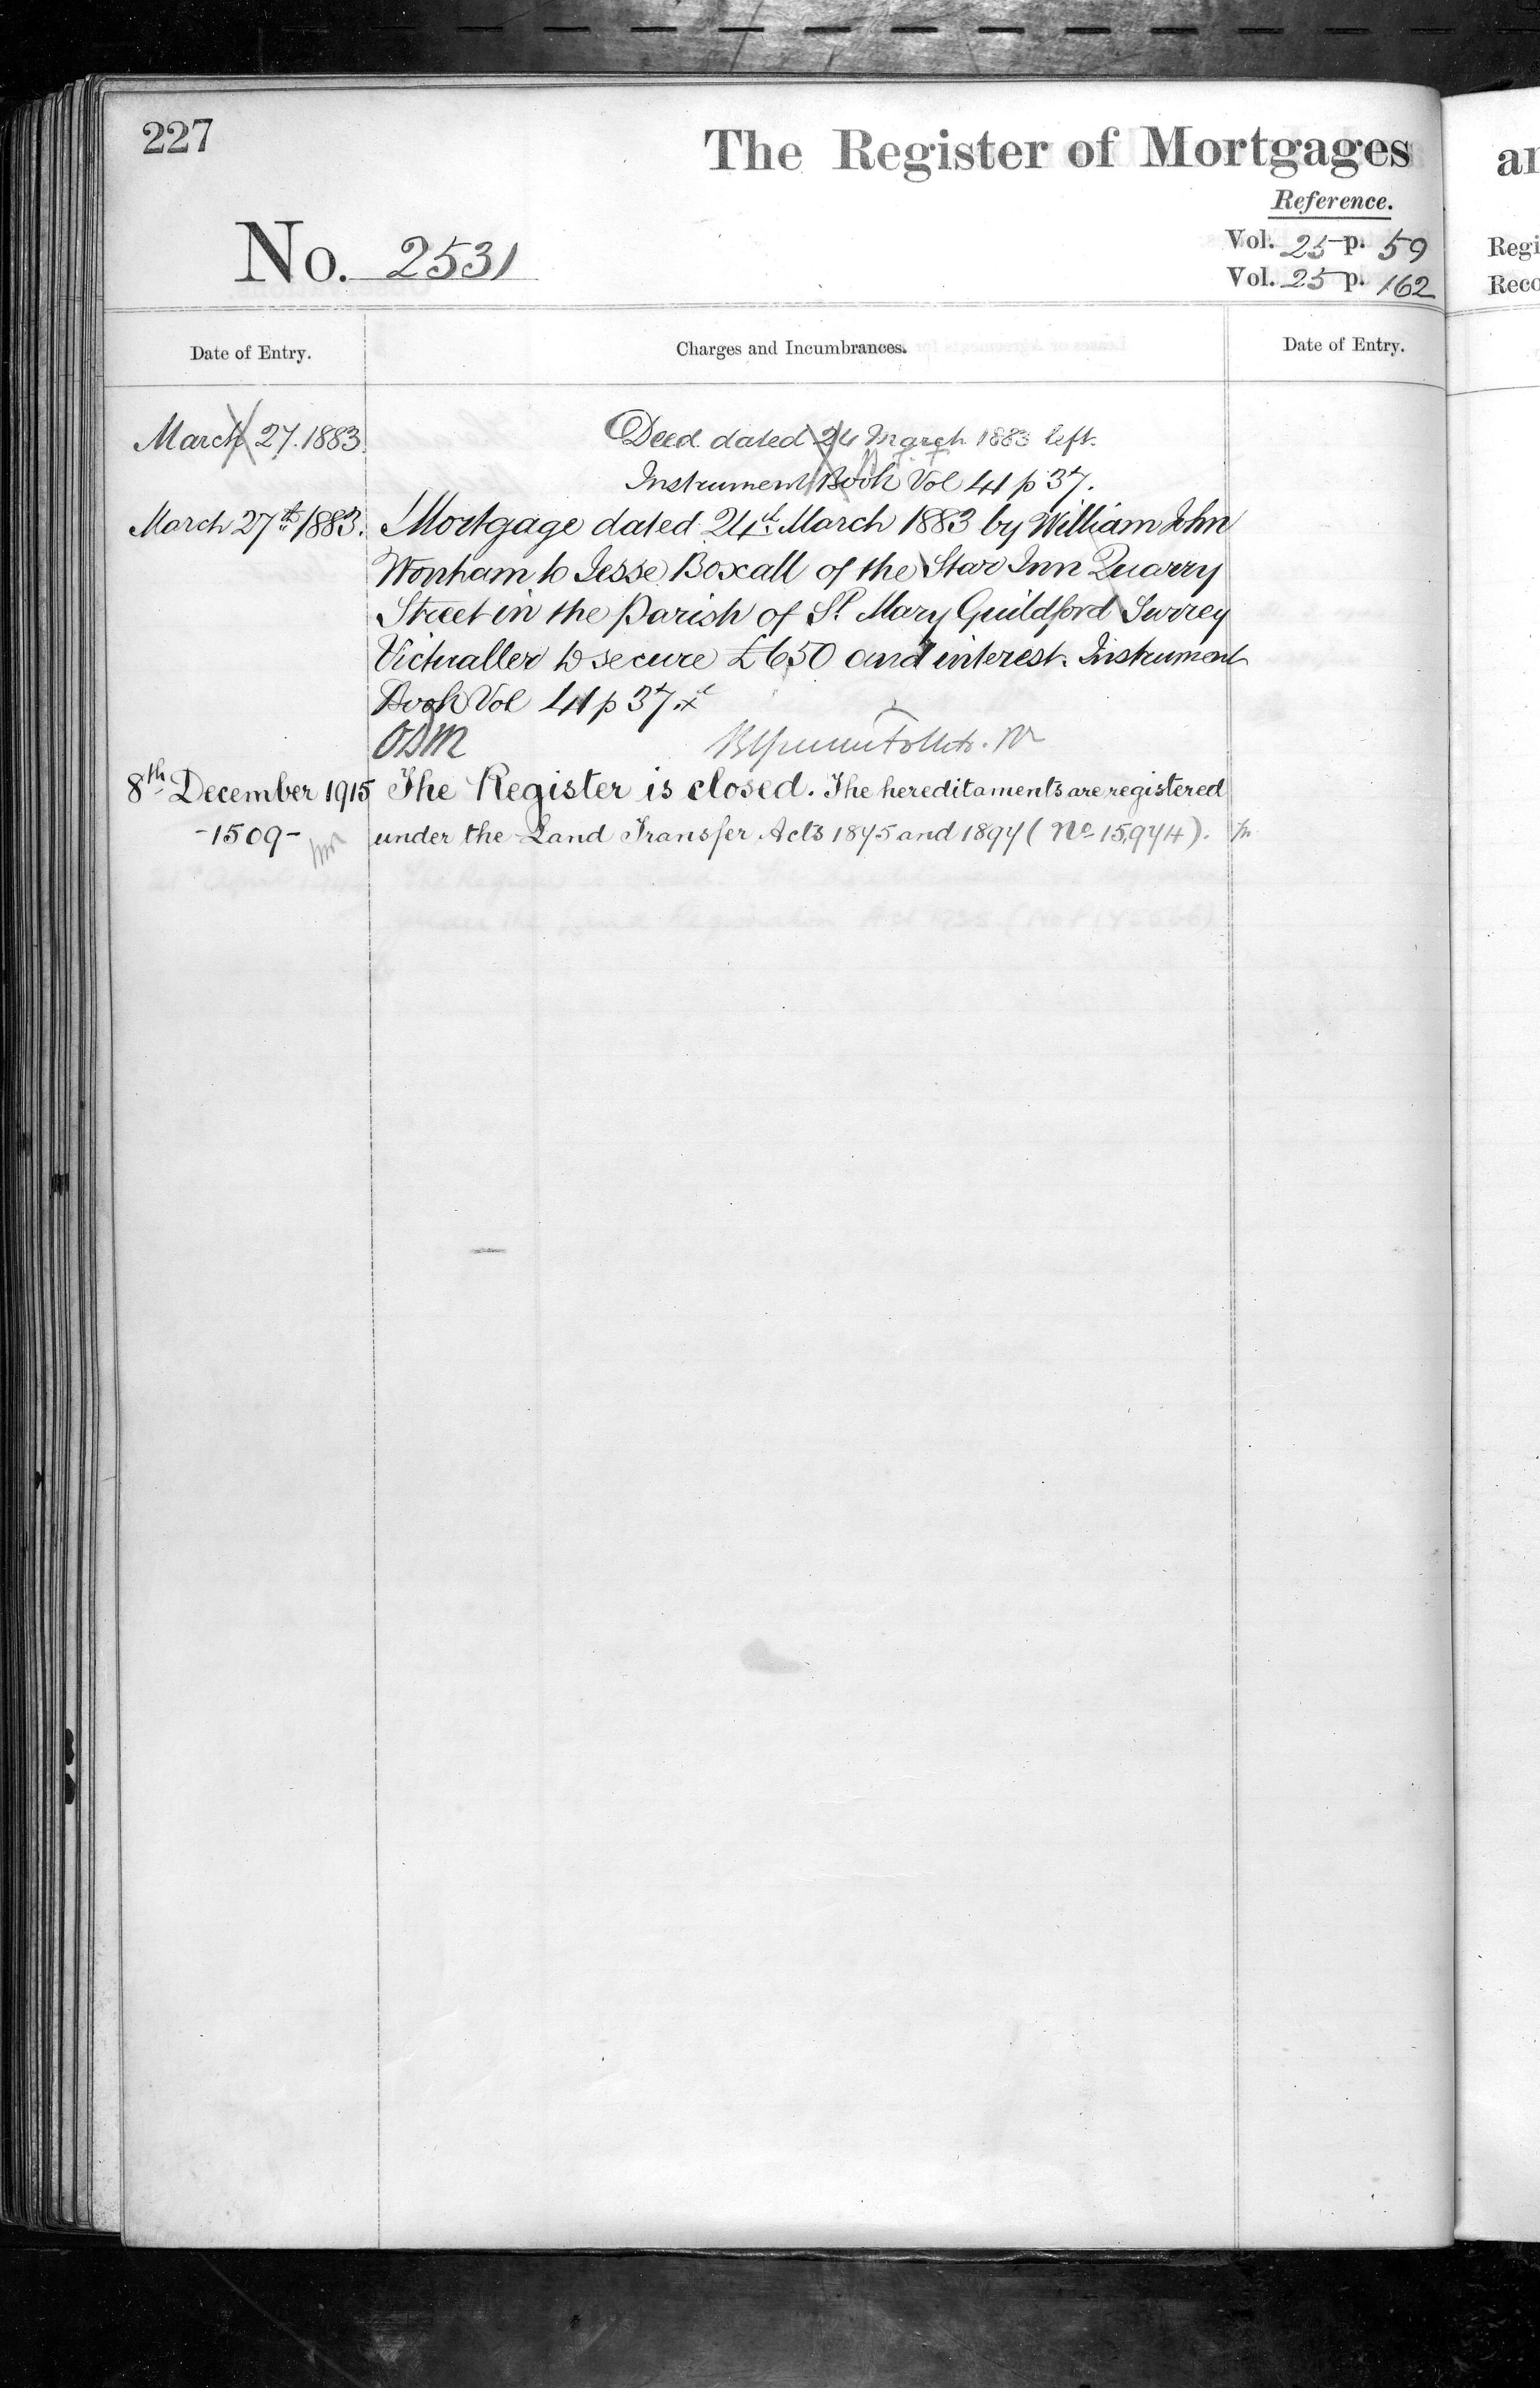 227
The Register of Mortgages
Reference.
No. 2531
Vol. 25 p. 59
Vol. 25 p. 162
Date of Entry.
Charges and Incumbrances.
Date of Entry.
March 27. 1883
Deed dated 24 March 1883 left.
Instrument Book Vol 41 p 37.
March 27th 1883. Mortgage dated 24th March 1883 by William John
Wonham to Jesse Boxall of the Star Inn Quarry
Street in the Parish of St Mary Guildford Surrey
Victualler to secure £650 and interest. Instrument
Book Vol 41 p 37.
8th December 1915 The Register is closed. The hereditaments are registered
-1509- under the Land Transfer Acts 1875 and 1897 (No 15,974).
ar
Regi
Reco